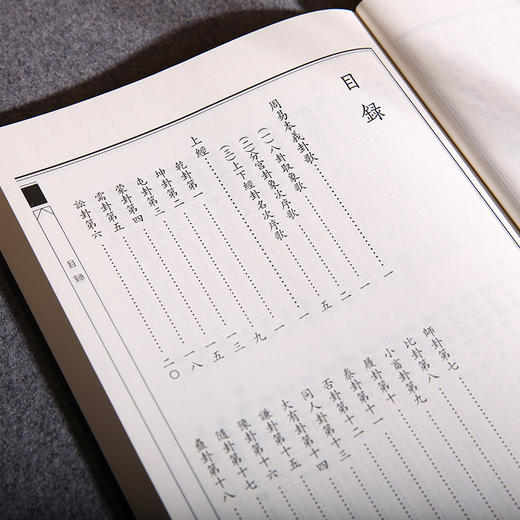 目録
周易本義卦歌……一
(一)八卦取象歌……一
(二)分宮卦象次序歌……二
(三)上下經卦名次序歌……五
上經……一
乾卦第一……一
坤卦第二……九
屯卦第三……一三
蒙卦第四……一五
需卦第五……一八
訟卦第六……二〇
師卦第七……
比卦第八……
小畜卦第九……
履卦第十……
泰卦第十一……
否卦第十二……
同人卦第十三……
大有卦第十四……
謙卦第十五……
豫卦第十六……
隨卦第十七……
蠱卦第十八……
目録